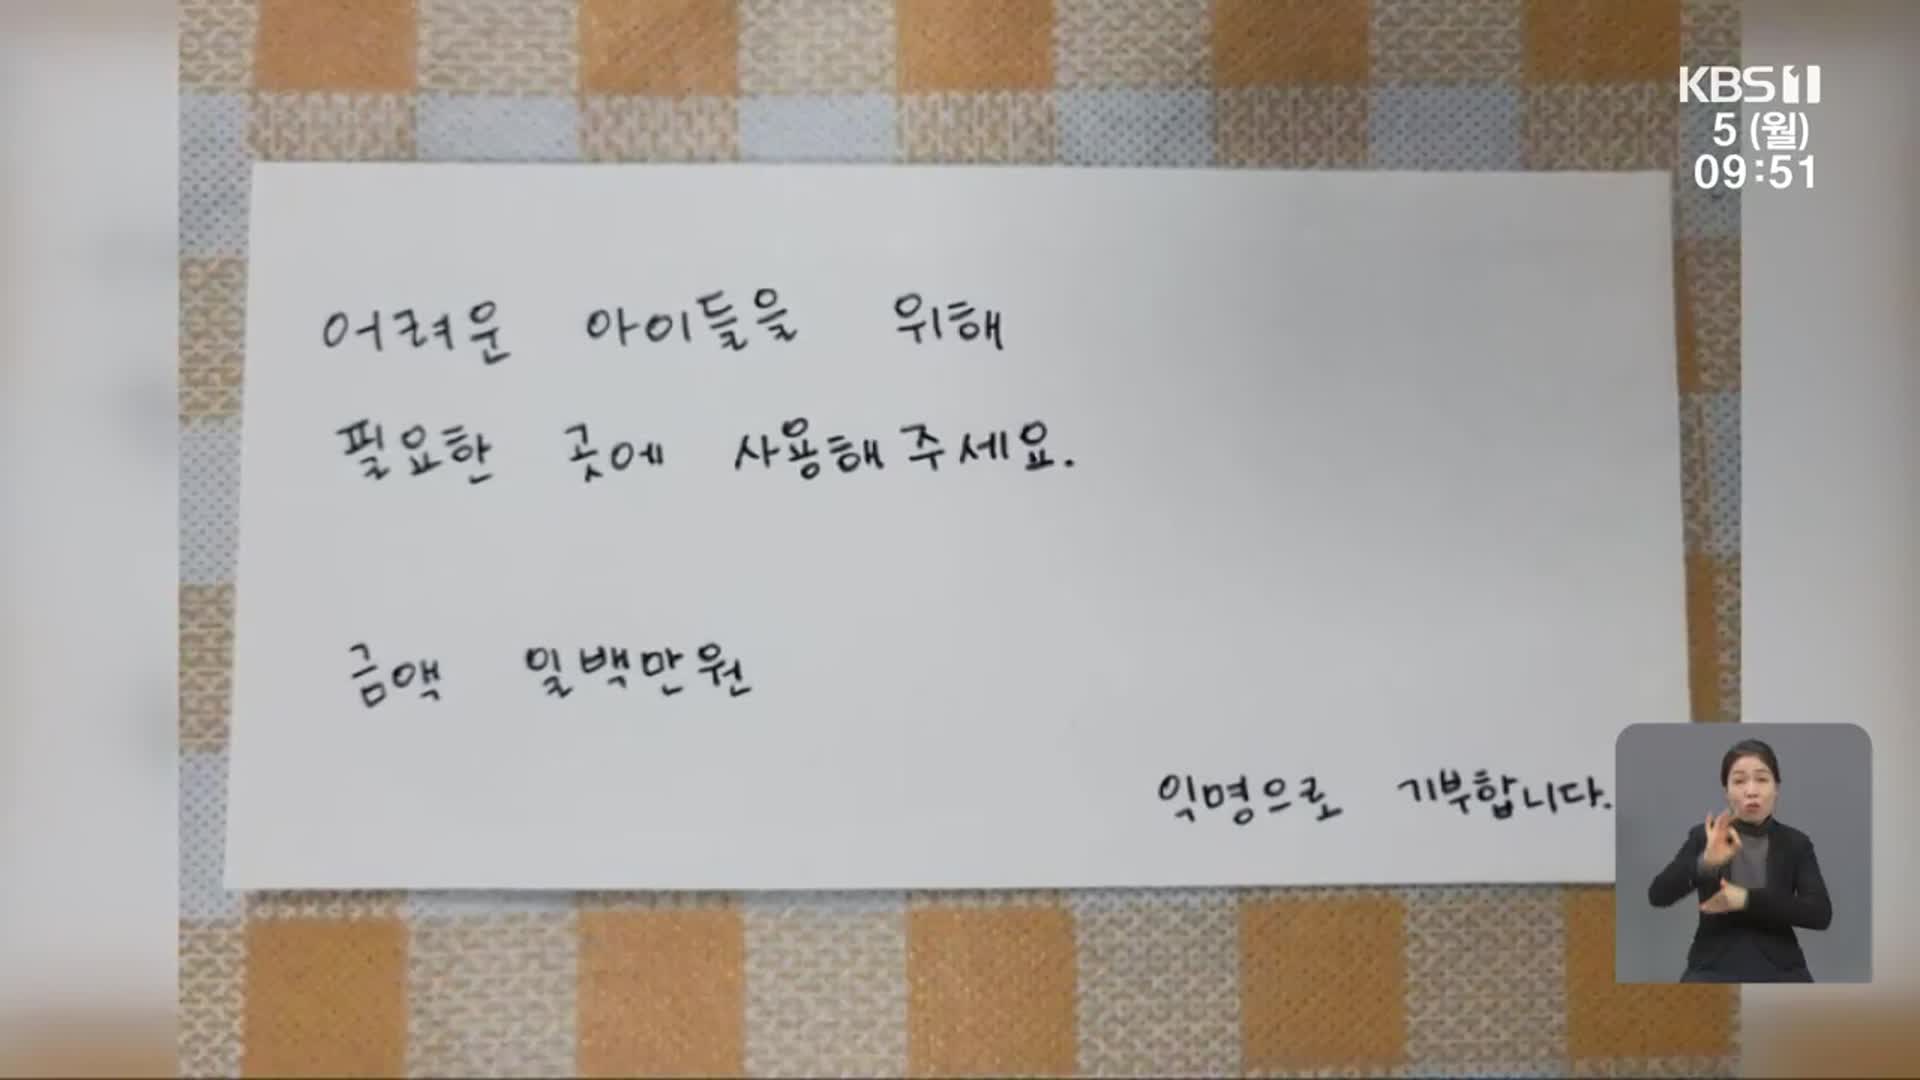 KBS1
5 (월)
09:51
어려운 아이들을 위해
필요한 곳에 사용해 주세요.
금액 일백만원
익명으로 기부합니다.